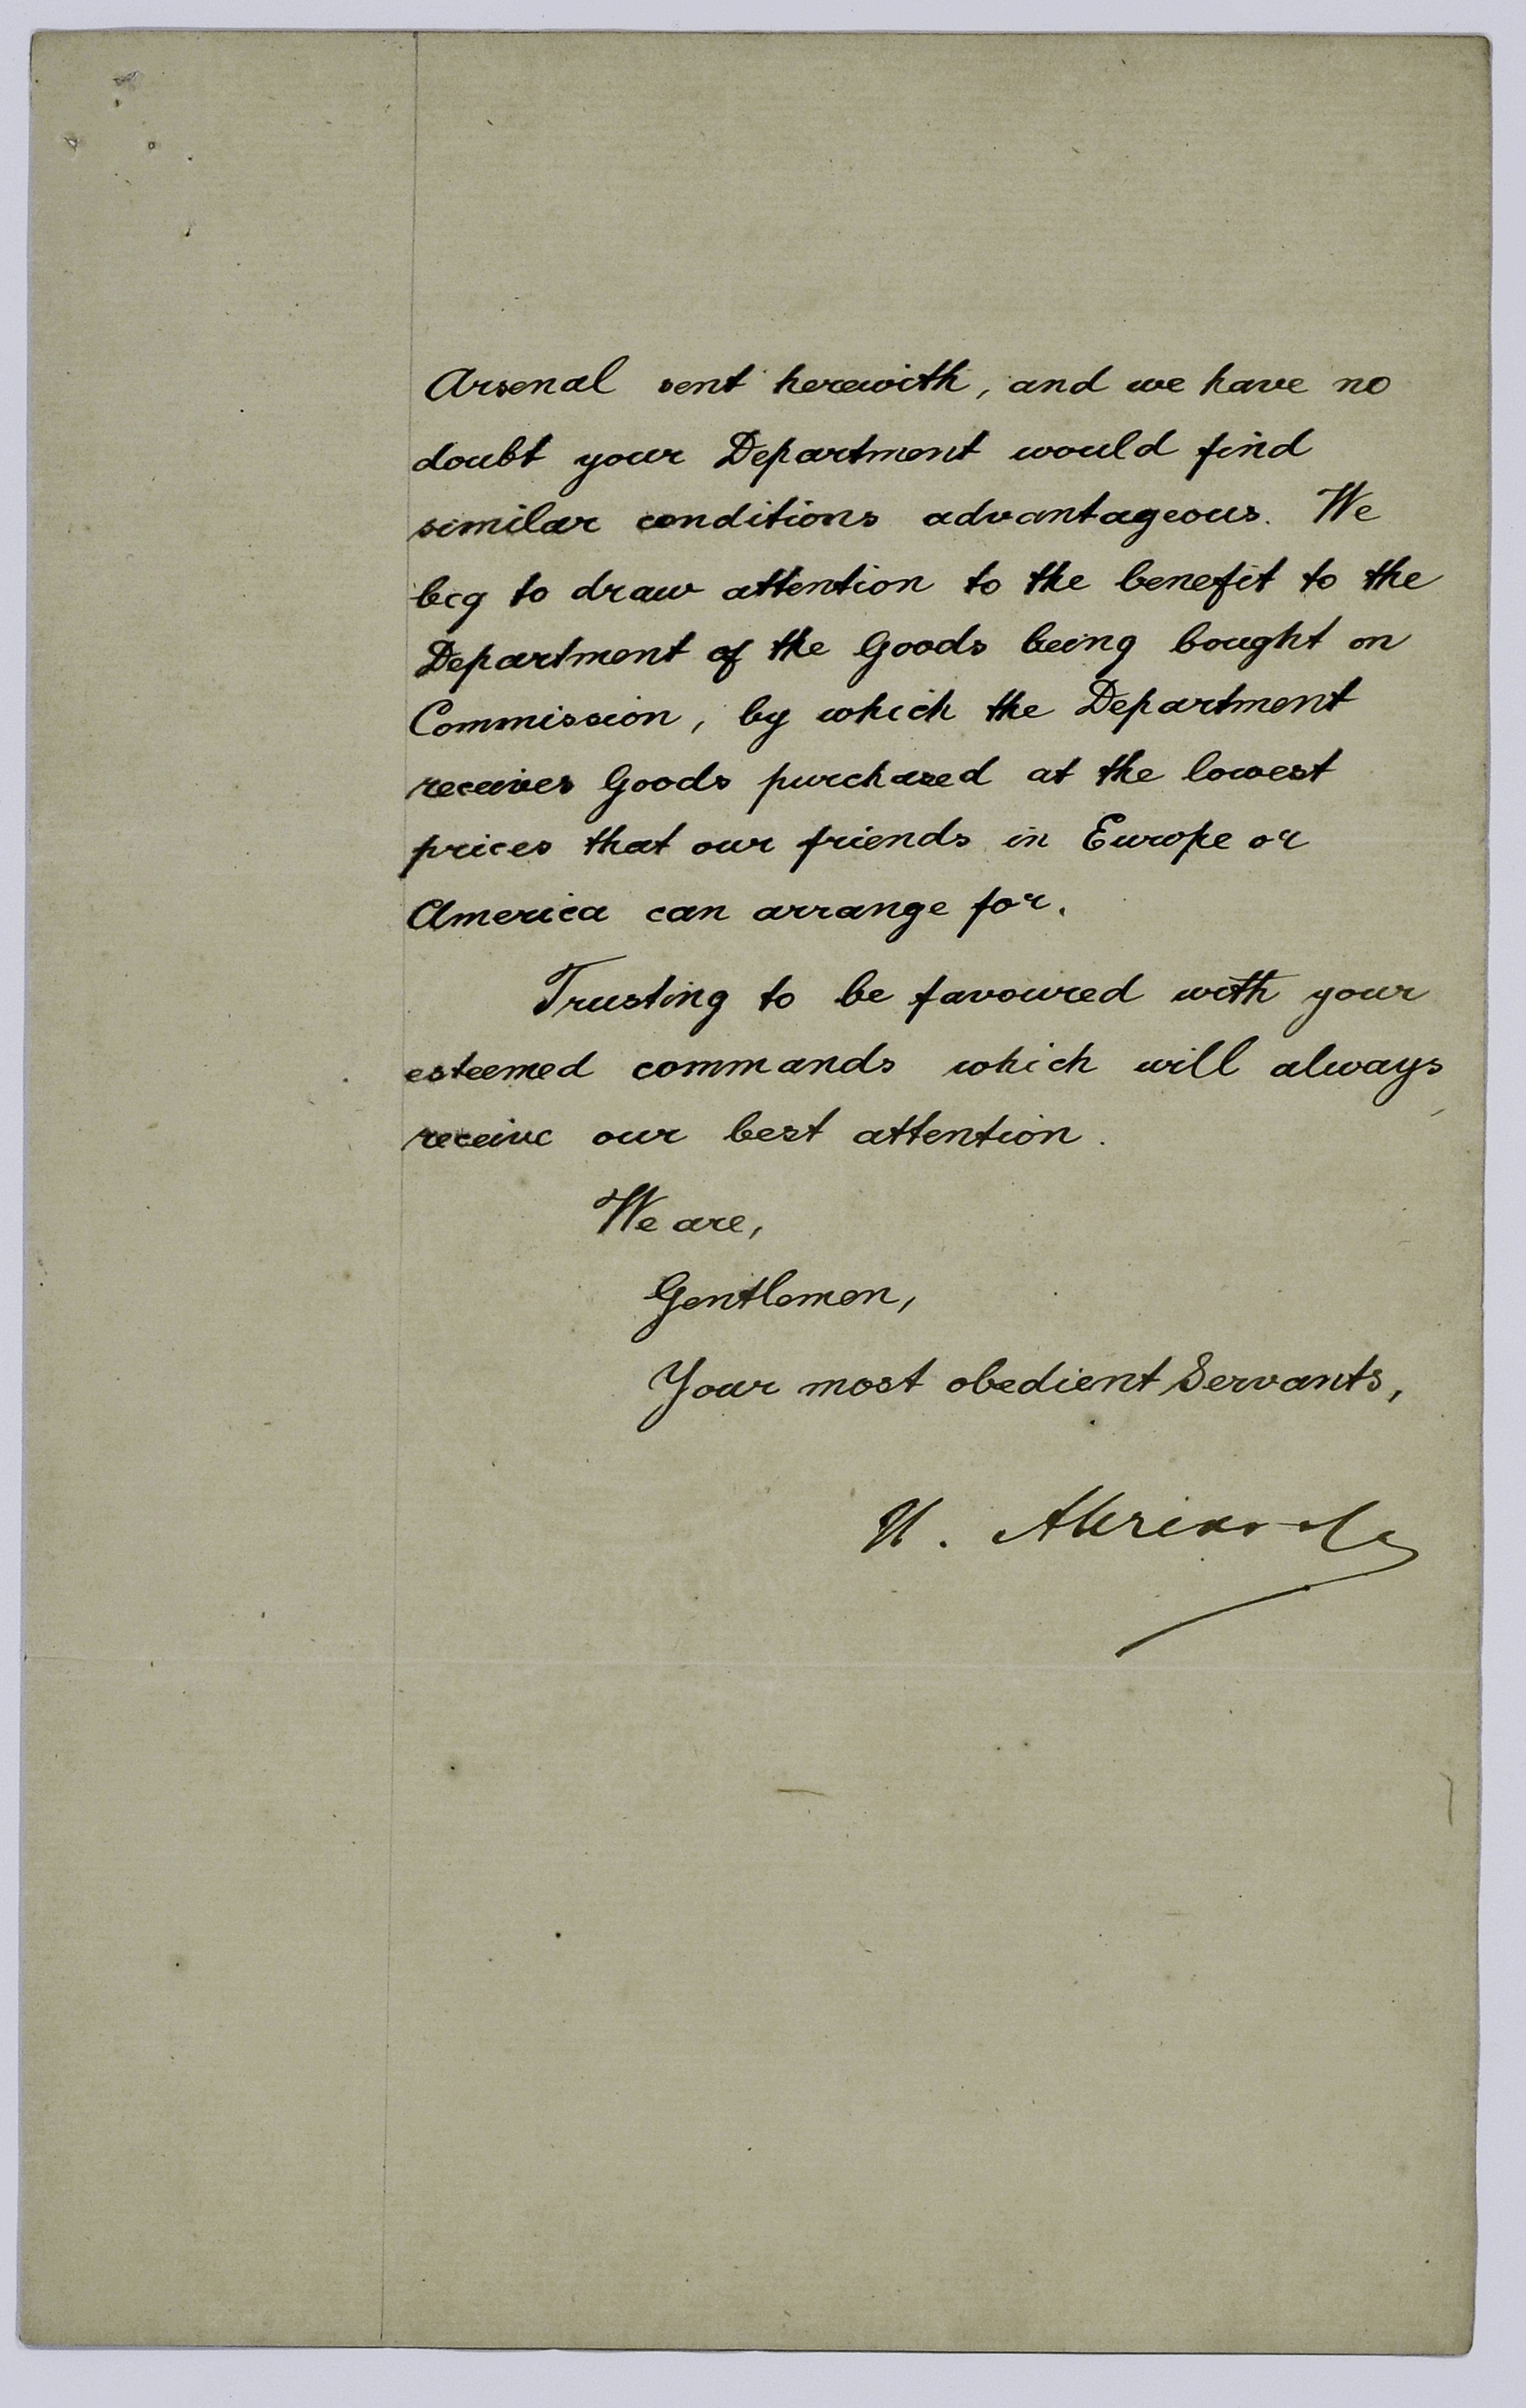 Arsenal sent herewith, and we have no
doubt your Department would find
similar conditions advantageous. We
beg to draw attention to the benefit to the
Department of the Goods being bought on
Commission, by which the Department
receives Goods purchased at the lowest
prices that our friends in Europe or
America can arrange for.
Trusting to be favoured with your
esteemed commands which will always
receive our best attention.
We are,
Gentlemen,
Your most obedient Servants,